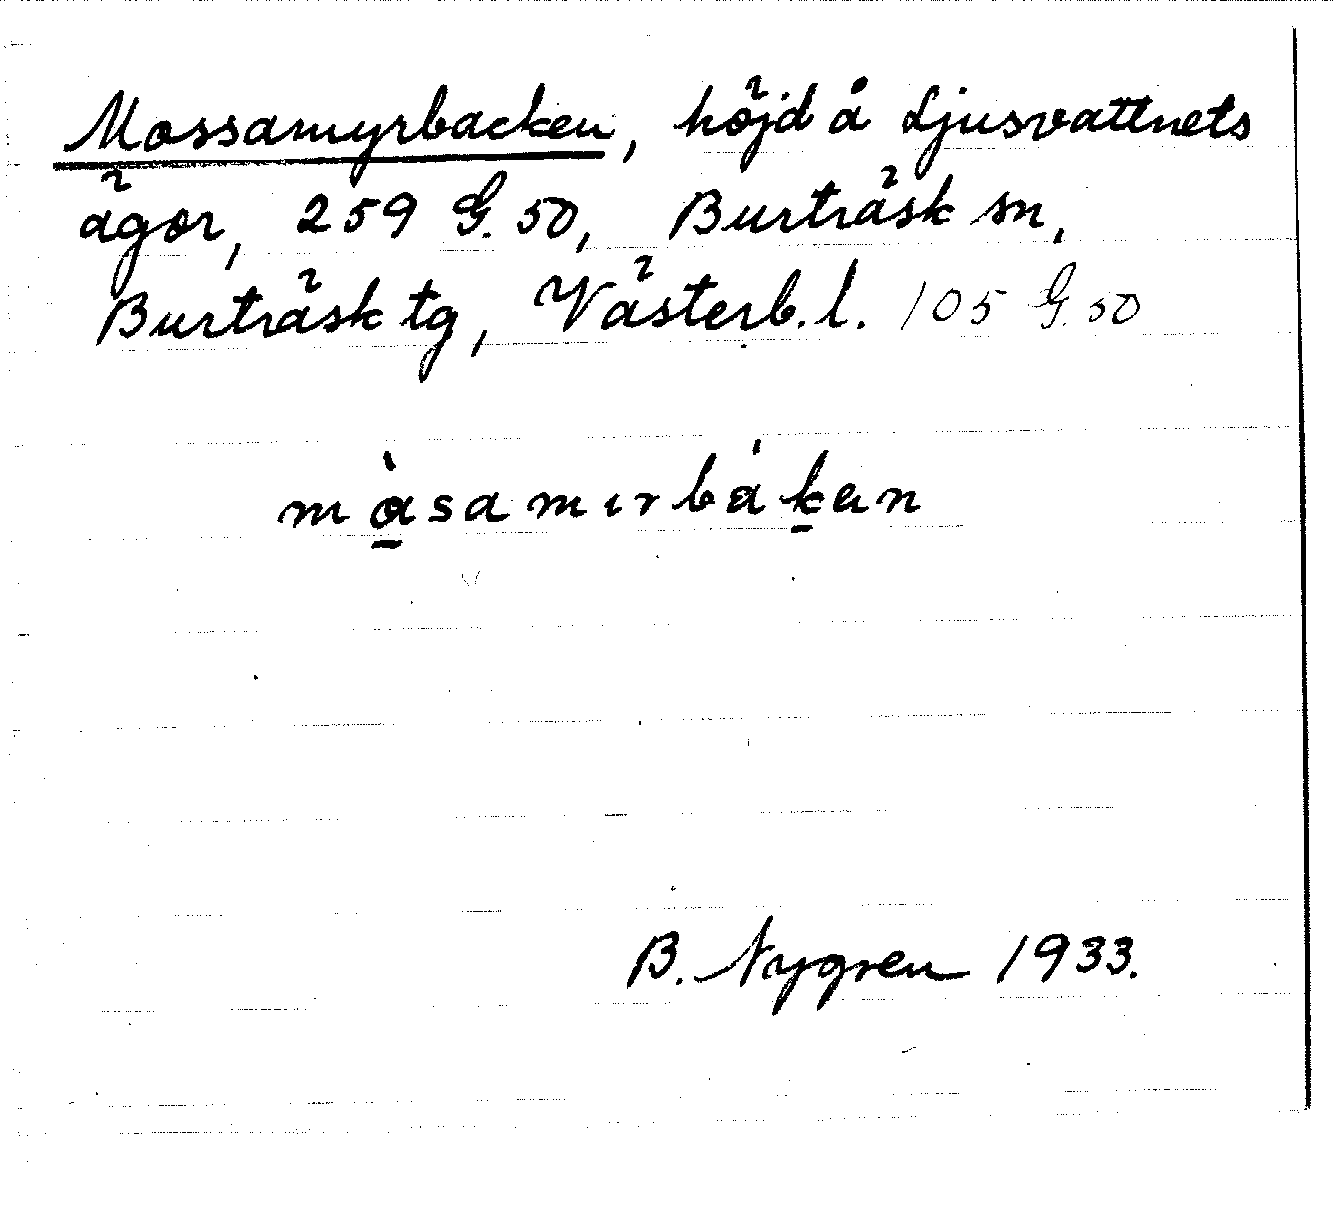 Mossamyrbacken, höjd å Ljusvattnets
ägor, 259 G. 50, Burträsk sn,
Burträsk tg, Västerb. l. 105 G. 50
mòsamırbáken
B. Nygren 1933.